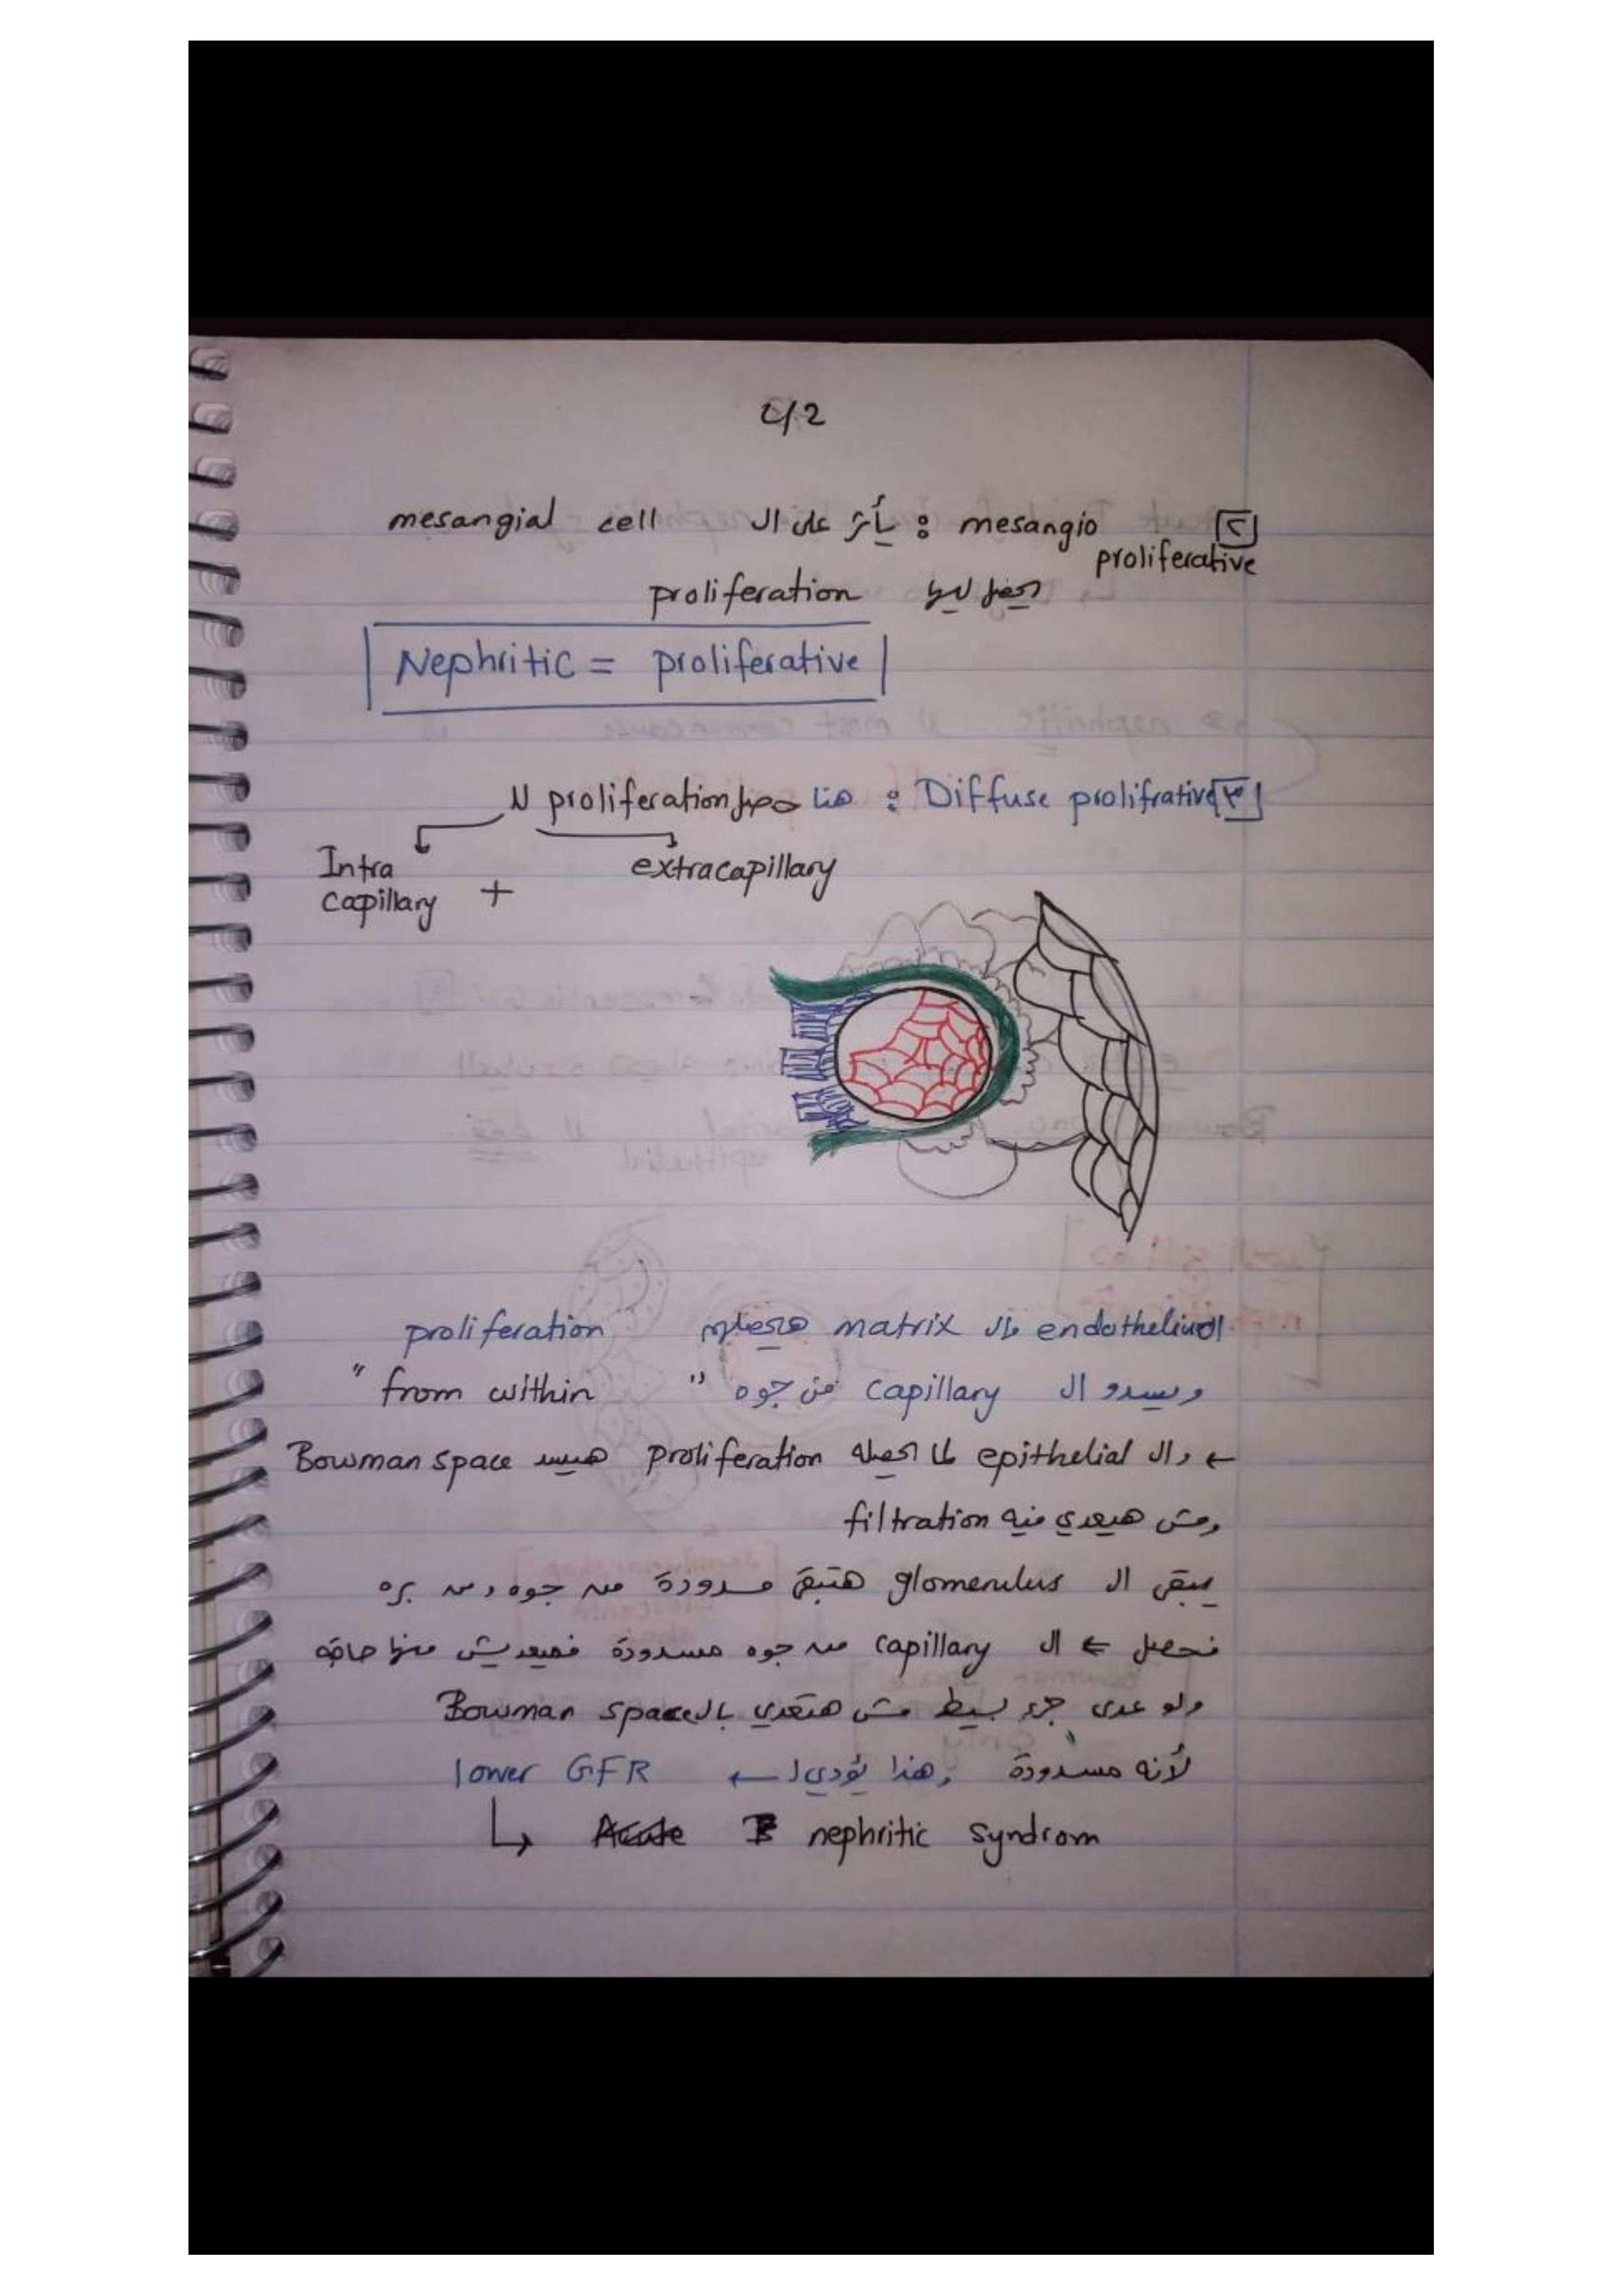 4/2
[٢] mesangio proliferative : يأثر على ال mesangial cell
يحصل ليها proliferation
Nephritic = proliferative
[٣] Diffuse prolifrative : هنا حصل proliferation ل
Intra capillary + extracapillary
ال endothelium وال matrix هيحصلهم proliferation
ويسدو ال capillary من جوه " from within "
← وال epithelial لما يحصله proliferation هيسد Bowman space
ومش هيعدي فيه filtration
يبقى ال glomerulus هتبقى مسدودة من جوه ومن بره
فحصل ← ال capillary من جوه مسدودة فميعديش منها حاجة
ولو عدى جزء بسيط مش هتعدي بال Bowman space
لأنه مسدودة وهذا يؤدي ل ← lower GFR
↳ Acute nephritic syndrom